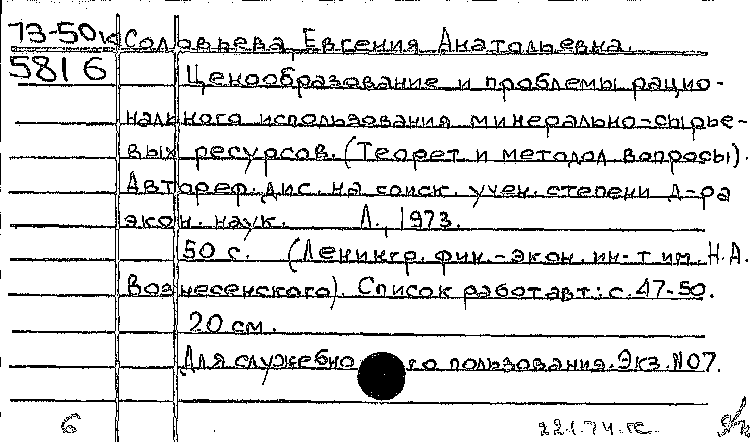 73-50к Соловьева, Евгения Анатольевна.
5816 Ценообразование и проблемы рацио-
нального использования минерально-сырье-
вых ресурсов. (Теорет. и методол. вопросы).
Автореф. дис. на соиск. учен. степени д-ра
экон. наук. Л., 1973.
50 с. (Ленингр. фин.-экон. ин-т им. Н.А.
Вознесенского). Список работ авт: с. 47-50.
20 см.
Для служебного пользования. Экз. №07.
6